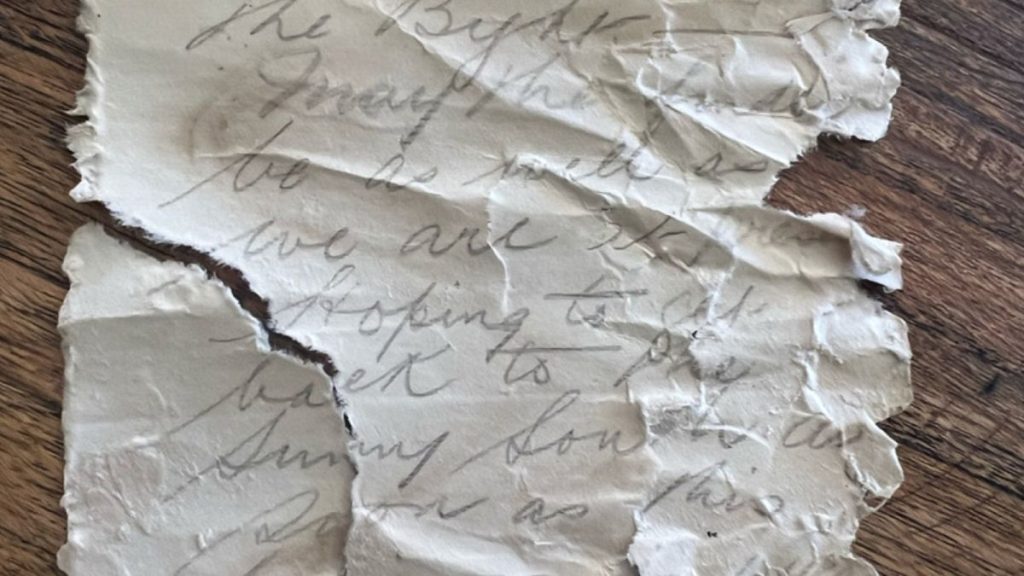 the
May the
be as well as
we are
Hoping to get
back to the
Sunny South as
Soon as this